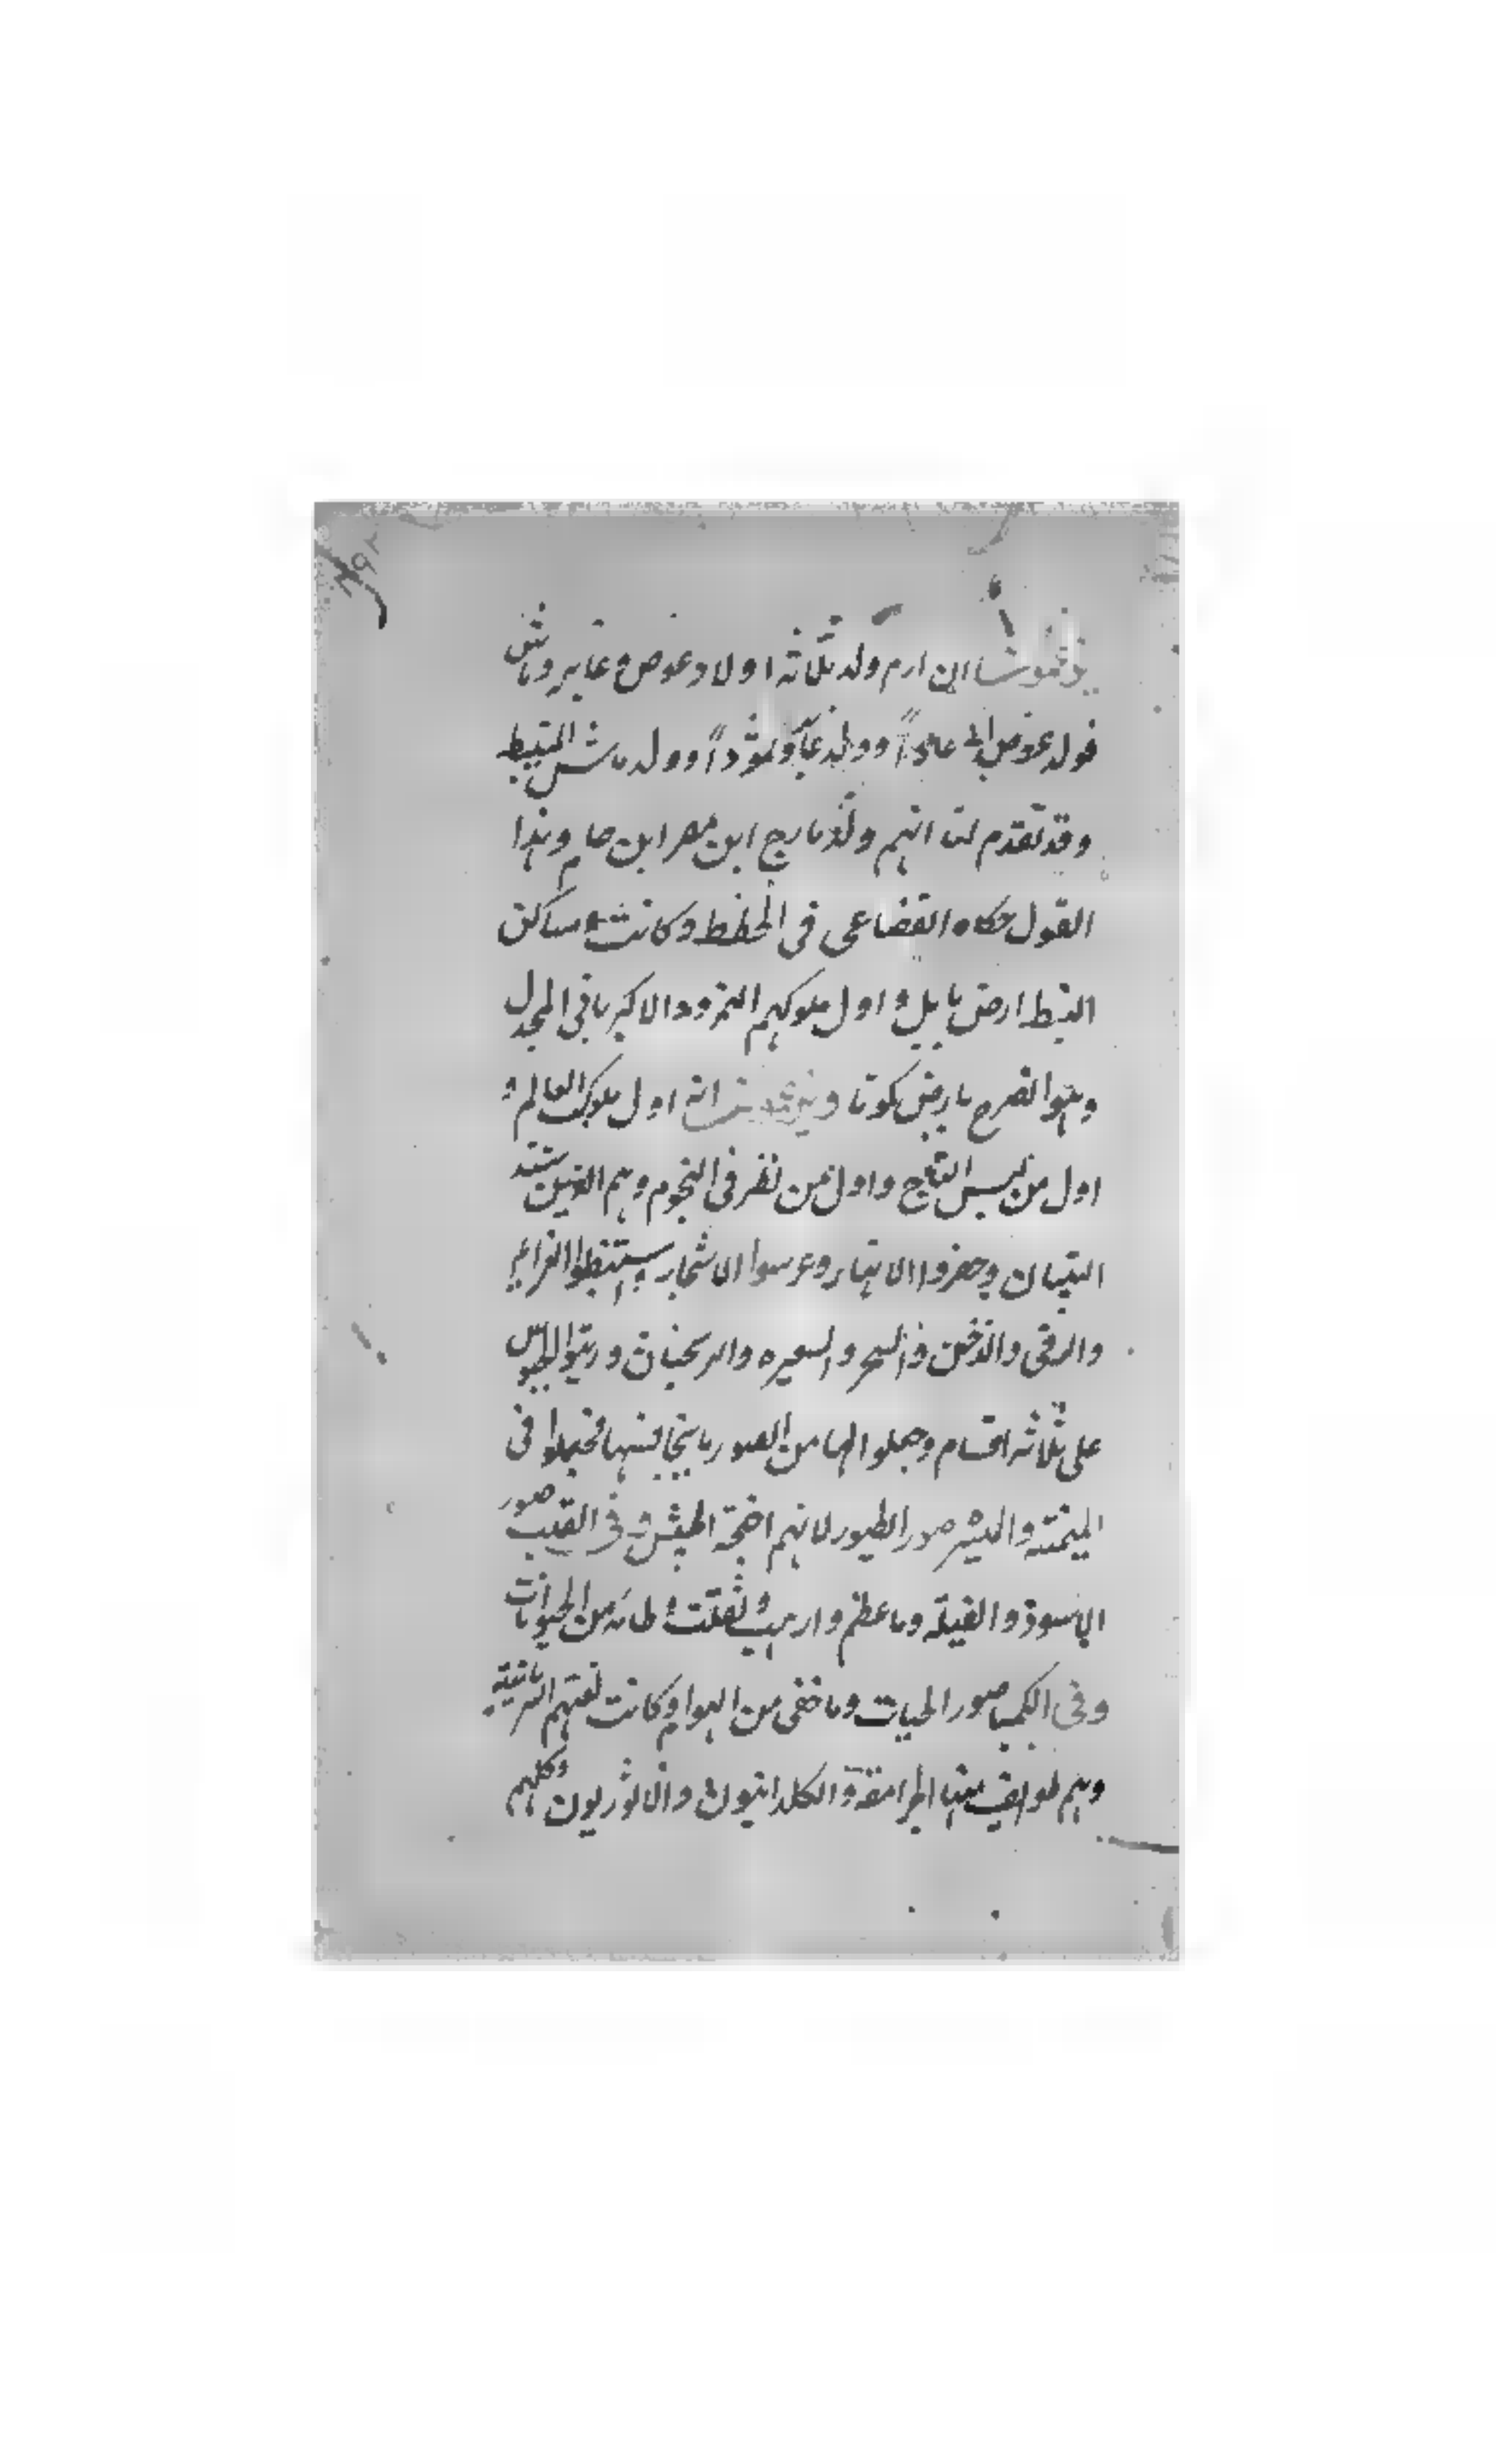 ابن ارم ولد ثلاثة اولاد عوض وعابر وماش
فولد عوض وولد وثموداً وولد ماش النبيط
وقد تقدم لنا انهم ولد مارج ابن مصر ابن حام وهذا
القول حكاه القضاعى فى الخطط وكانت مساكن
النبط ارض بابل واول ملوكهم النمرود الاكبر بانى المجدل
وهو الصرح بارض كوثا انه اول ملوك العالم و
اول من لبس التاج واول من نظر فى النجوم وهم الذين شيد
البنيان وحفروا الانهار وغرسوا الاشجار واستنبطوا العزايم
والرقى والدخن والسحر والسعبره والنرنجيات ورتبوا الجيوش
على ثلاثة اقسام وجعلوا لها من الصور ما يتجانسها فجعلوا فى
الميمنة والميسره صور الطيور لانهم اجنحة الجيش وفى القلب صور
الاسود والفيلة وما عظم وارهب وثقلت من الحيوانات
وفى صور الحيات وما خفى من الهوام وكانت لغتهم السريانية
وهم طوايف منها الجرامقة والكلدانيون والاثوريون وكلهم